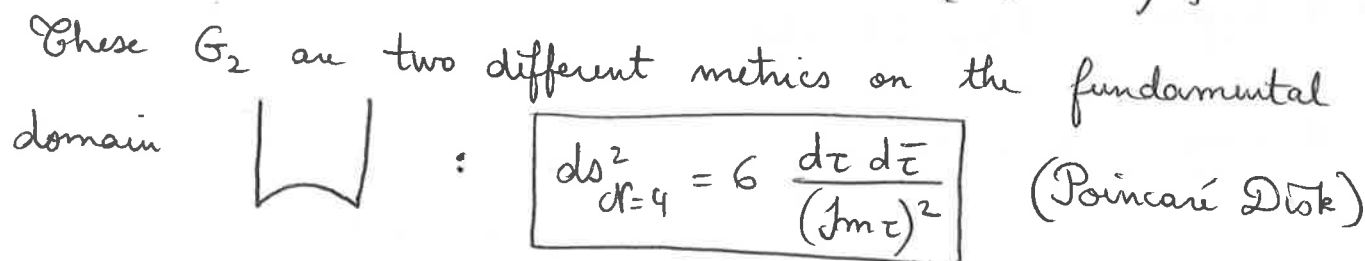 These G₂ are two different metrics on the fundamental
domain : ds²_{𝒩=4} = 6 \frac{dτ dτ̄}{(Im τ)²} (Poincaré Disk)